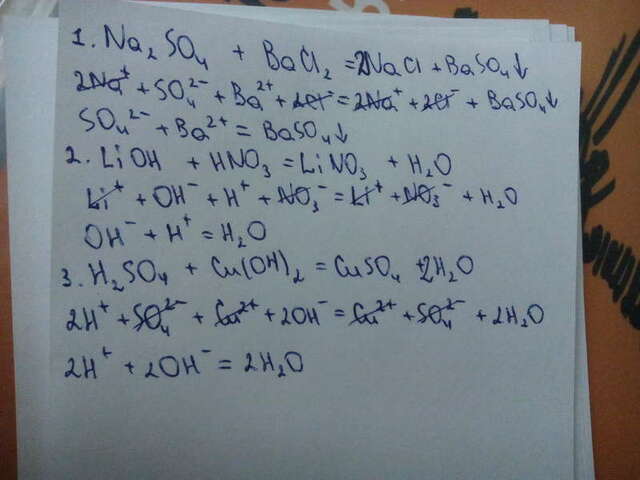 1. Na₂SO₄ + BaCl₂ = 2NaCl + BaSO₄↓
2Na⁺ + SO₄²⁻ + Ba²⁺ + 2Cl⁻ = 2Na⁺ + 2Cl⁻ + BaSO₄↓
SO₄²⁻ + Ba²⁺ = BaSO₄↓
2. LiOH + HNO₃ = LiNO₃ + H₂O
Li⁺ + OH⁻ + H⁺ + NO₃⁻ = Li⁺ + NO₃⁻ + H₂O
OH⁻ + H⁺ = H₂O
3. H₂SO₄ + Cu(OH)₂ = CuSO₄ + 2H₂O
2H⁺ + SO₄²⁻ + Cu²⁺ + 2OH⁻ = Cu²⁺ + SO₄²⁻ + 2H₂O
2H⁺ + 2OH⁻ = 2H₂O